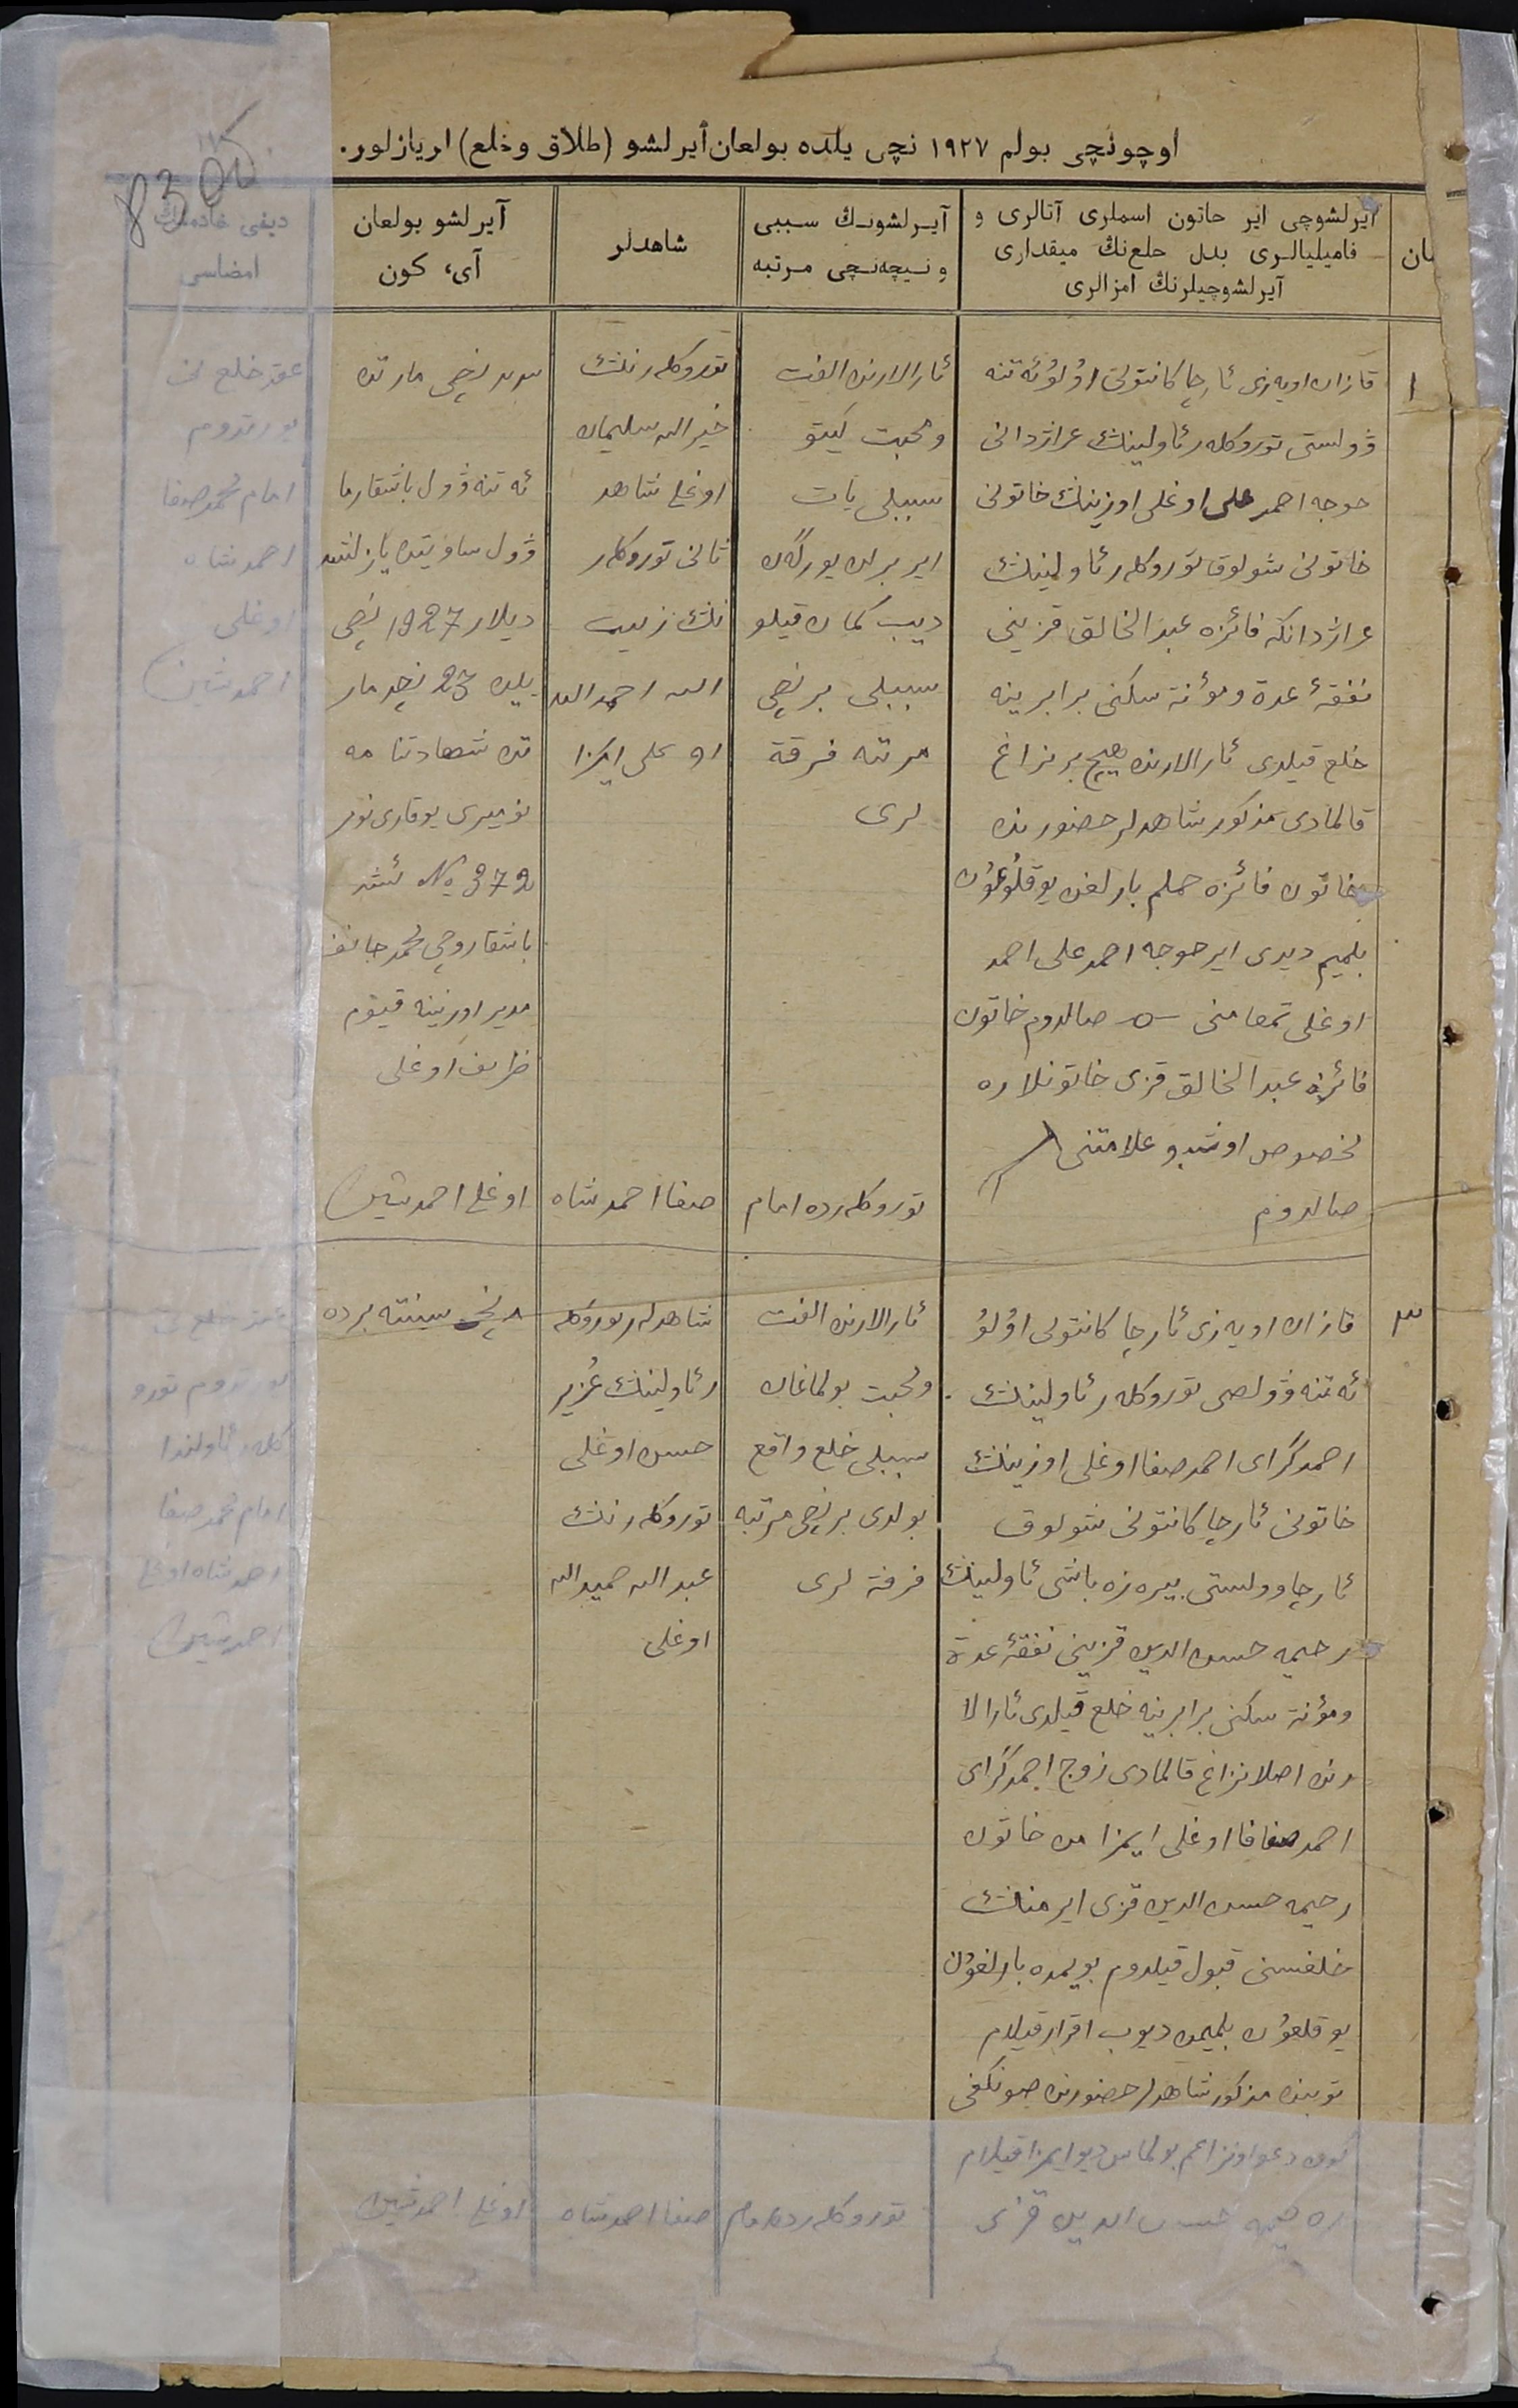 8300
اوچونچی بولم ۱۹۲۷ نچی یلده بولعان آیرلشو (طلاق وخلع) اریازلور.
آیرلشوچی ایر حاتون اسملری آتالری و
فامیلیالری بدل حلع‌نڭ میقداری
آیرلشوچیلرنڭ امزالری
آیرلشونڭ سببی
ونیچه‌نچی مرتبه
شاهدلر
آیرلشو بولعان
آی، کون
دیفی خادمنڭ
امضاسی
۱
قازان اویه‌زی ئارچا کانتونی اۇلۇئه‌تنه
ۋولستی توروکله‌ر ئاولینڭ عراژدانی
حوجه احمد علی اوغلی اوزینڭ خاتونی
خاتونی شولوق تورکله‌ر ئاولینڭ
عراژدانکه فائزه عبدالخالق قزینی
نفقۀ عدة ومؤنة سکنی برابرینه
خلع قیلدی ئارالارنده هیچ بر نزاغ
قالمادی مذکور شاهدلر حضورنده
خاتون فائزه حملم بارلغن یوقلۇغۇن
بلمیم دیدی ایر حوجه احمد علی احمد
اوغلی تمعامنی صالدوم خاتون
فائزه عبدالخالق قزی خاتونلاره
لخصوص اوشبو علامتنی
صالدوم
ئارالارنده الفت
ومحبت کیتو
سببلی یات
ایر برلن یورگەن
دیب کمان قیلو
سببلی برنچی
مرتبه فرقة
لری
تورکله‌ر امام
تورکله‌رنڭ
خیرالله سلیمان
اوغلی شاهد
ثانی تورکله‌ر
نڭ زبیب
الله احمدالله
صفا احمدشاه
نچی مارتده
ئه‌تنه ۋول باشقارما
ۋول ساویتده یازلشد
دیلار 1927 نچی
یلده 23 نچی مار
تده شهادتنامه
نومیری یوقاری نومر
№ 372
باشقاروچی محمدجانف
مدیر اورنینه قیوم
ظریف اوغلی
اوغلی احمدشین
عقد خلع نی
یورتدوم
امام محمدصفا
احمدشاه
اوغلی
احمدشین
قازان اویه‌زی ئارچا کانتونی اۇلۇ
ئه‌تنه ۋولصی تورکله‌ر ئاولینڭ
احمدگرای احمدصفا اوغلی اوزینڭ
خاتونی ئارچا کانتونی شولوق
ئارچا وولستی بیره‌زه باشی ئاولینڭ
رحیمه حسن‌الدین قزینی نفقۀ عدة
ومؤنة سکنی برابرینه خلع قیلدی ئارالا
رنده اصلا نزاع قالمادی زوج احمدگرای
احمدصفا اوغلی ایمزا من خاتون
رحیمه حسن‌الدین قزی ایرمنڭ
خلعسنی قبول قیلدوم بویمده بارلغۇن
یوقلغۇن بلمیمن دیوب اقرار قیلام
توبنده مذکور شاهدلر حضورنده صونکغی
کون دعوا ونزاعم بولماس دیو ایمزا قیلام
رحیمه حسن‌الدین قزی
ئارالارنده الفت
ومحبت بولماغان
سببلی خلع واقع
بولدی برنچی مرتبه
فرقة لری
تورکله‌رده امام
شاهدلر تورکله
ر ئاولینڭ عُزیر
حسن اوغلی
تورکله‌رنڭ
عبدالله حمیدالله
اوغلی
صفا احمدشاه
نچی سینته‌برده
اوغلی احمدشین
عقد خلع نی
یورتدوم تورو
کله‌ر ئاولندا
امام محمدصفا
احمدشاه اوغلی
احمدشین